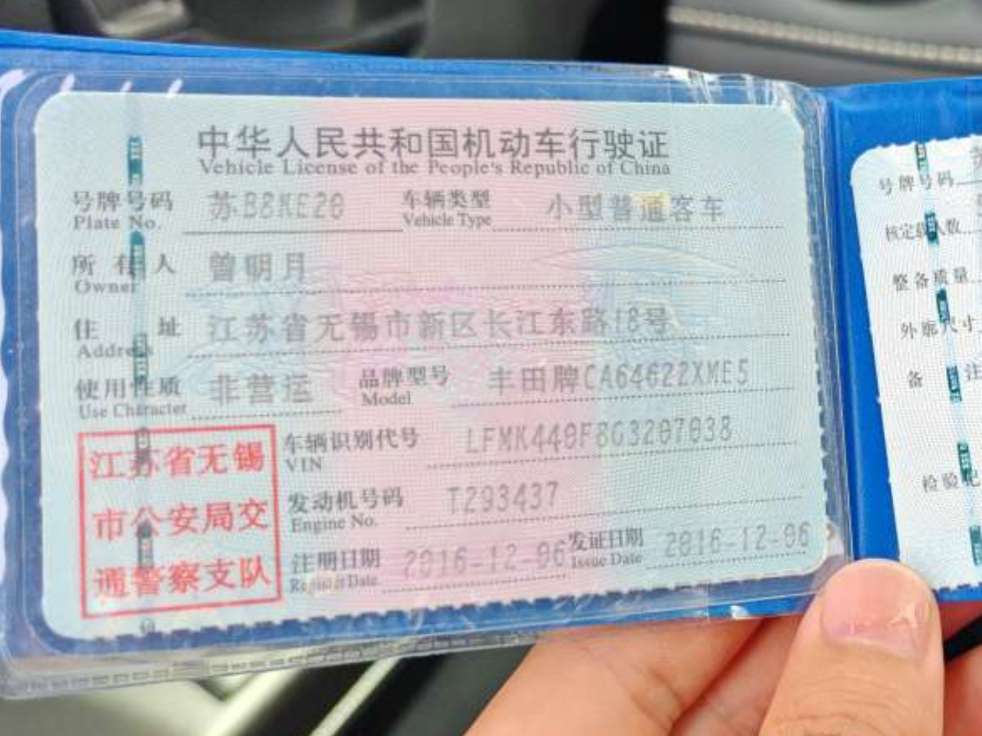 中华人民共和国机动车行驶证
Vehicle License of the People's Republic of China
号牌号码 苏B8KE20 车辆类型 小型普通客车
Plate No. Vehicle Type
所有人 曾明月
Owner
住址 江苏省无锡市新区长江东路18号
Address
使用性质 非营运 品牌型号 丰田牌CA64622XME5
Use Character Model
江苏省无锡
市公安局交
通警察支队
车辆识别代号 LFMK440F8G3207038
VIN
发动机号码 T293437
Engine No.
注册日期 2016-12-06 发证日期 2016-12-06
Register Date Issue Date
号牌号码
核定载人数
整备质量
外廓尺寸
备注
检验记